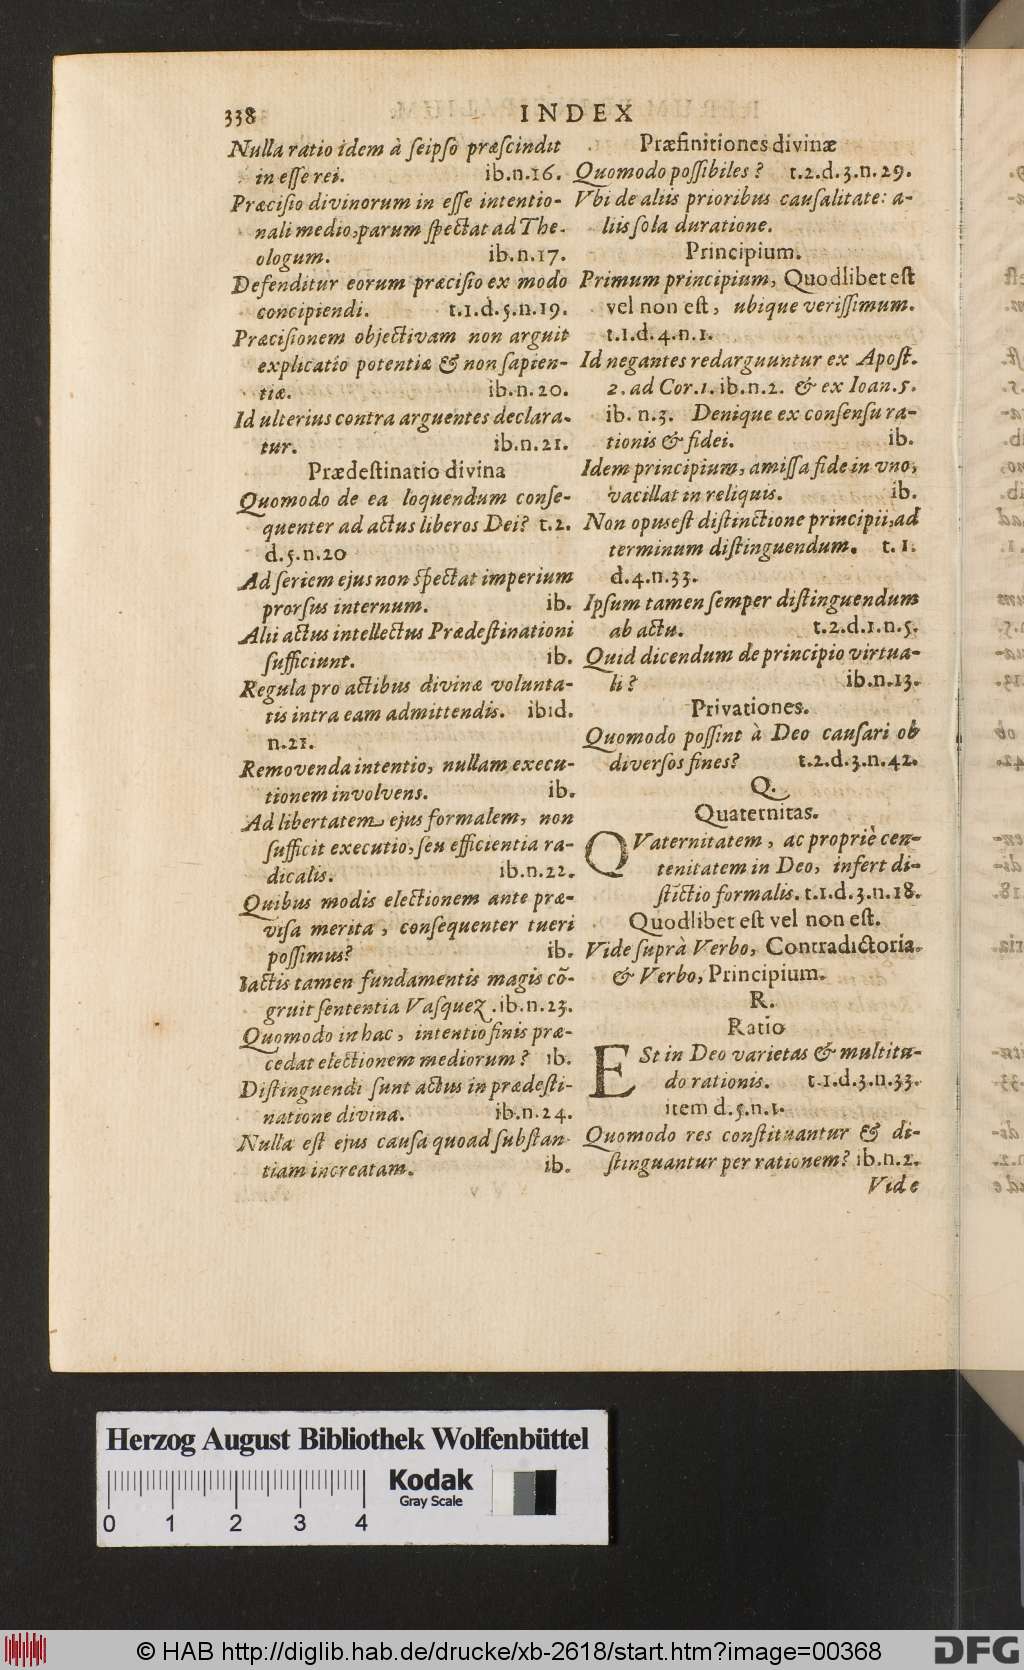 338
INDEX
Nulla ratio idem à ſeipſo præſcindit
in eſſe rei. ib.n.16.
Præciſio divinorum in eſſe intentio-
nali medio, parum ſpectat ad The-
ologum. ib.n.17.
Defenditur eorum præciſio ex modo
concipiendi. t.1.d.5.n.19.
Præciſionem objectivam non arguit
explicatio potentiæ & non ſapien-
tiæ. ib.n.20.
Id ulterius contra arguentes declara-
tur. ib.n.21.
Prædeſtinatio divina
Quomodo de ea loquendum conſe-
quenter ad actus liberos Dei? t.2.
d.5.n.20
Ad ſeriem ejus non ſpectat imperium
prorſus internum. ib.
Alii actus intellectus Prædeſtinationi
ſufficiunt. ib.
Regula pro actibus divinæ volunta-
tis intra eam admittendis. ibid.
n.21.
Removenda intentio, nullam execu-
tionem involvens. ib.
Ad libertatem ejus formalem, non
ſufficit executio, ſeu efficientia ra-
dicalis. ib.n.22.
Quibus modis electionem ante præ-
viſa merita, conſequenter tueri
poſſimus? ib.
Iactis tamen fundamentis magis cõ-
gruit ſententia Vaſquez. ib.n.23.
Quomodo in hac, intentio finis præ-
cedat electionem mediorum? ib.
Diſtinguendi ſunt actus in prædeſti-
natione divina. ib.n.24.
Nulla eſt ejus cauſa quoad ſubſtan-
tiam increatam. ib.
Præfinitiones divinæ
Quomodo poſſibiles? t.2.d.3.n.29.
Vbi de aliis prioribus cauſalitate: a-
liis ſola duratione.
Principium.
Primum principium, Quodlibet eſt
vel non eſt, ubique veriſſimum.
t.1.d.4.n.1.
Id negantes redarguuntur ex Apoſt.
2. ad Cor.1. ib.n.2. & ex Ioan.5.
ib. n.3. Denique ex conſenſu ra-
tionis & fidei. ib.
Idem principium, amiſſa fide in vno,
vacillat in reliquis. ib.
Non opus eſt diſtinctione principii, ad
terminum diſtinguendum. t.1.
d.4.n.33.
Ipſum tamen ſemper diſtinguendum
ab actu. t.2.d.1.n.5.
Quid dicendum de principio virtua-
li? ib.n.13.
Privationes.
Quomodo poſſint à Deo cauſari ob
diverſos fines? t.2.d.3.n.42.
Q.
Quaternitas.
QVaternitatem, ac propriè cen-
tenitatem in Deo, infert di-
ſtictio formalis. t.1.d.3.n.18.
Quodlibet eſt vel non eſt.
Vide ſuprà Verbo, Contradictoria.
& Verbo, Principium.
R.
Ratio
ESt in Deo varietas & multitu-
do rationis. t.1.d.3.n.33.
item d.5.n.1.
Quomodo res conſtituantur & di-
ſtinguantur per rationem? ib.n.2.
Vide
Herzog August Bibliothek Wolfenbüttel
Kodak
Gray Scale
0 1 2 3 4
© HAB http://diglib.hab.de/drucke/xb-2618/start.htm?image=00368
DFG